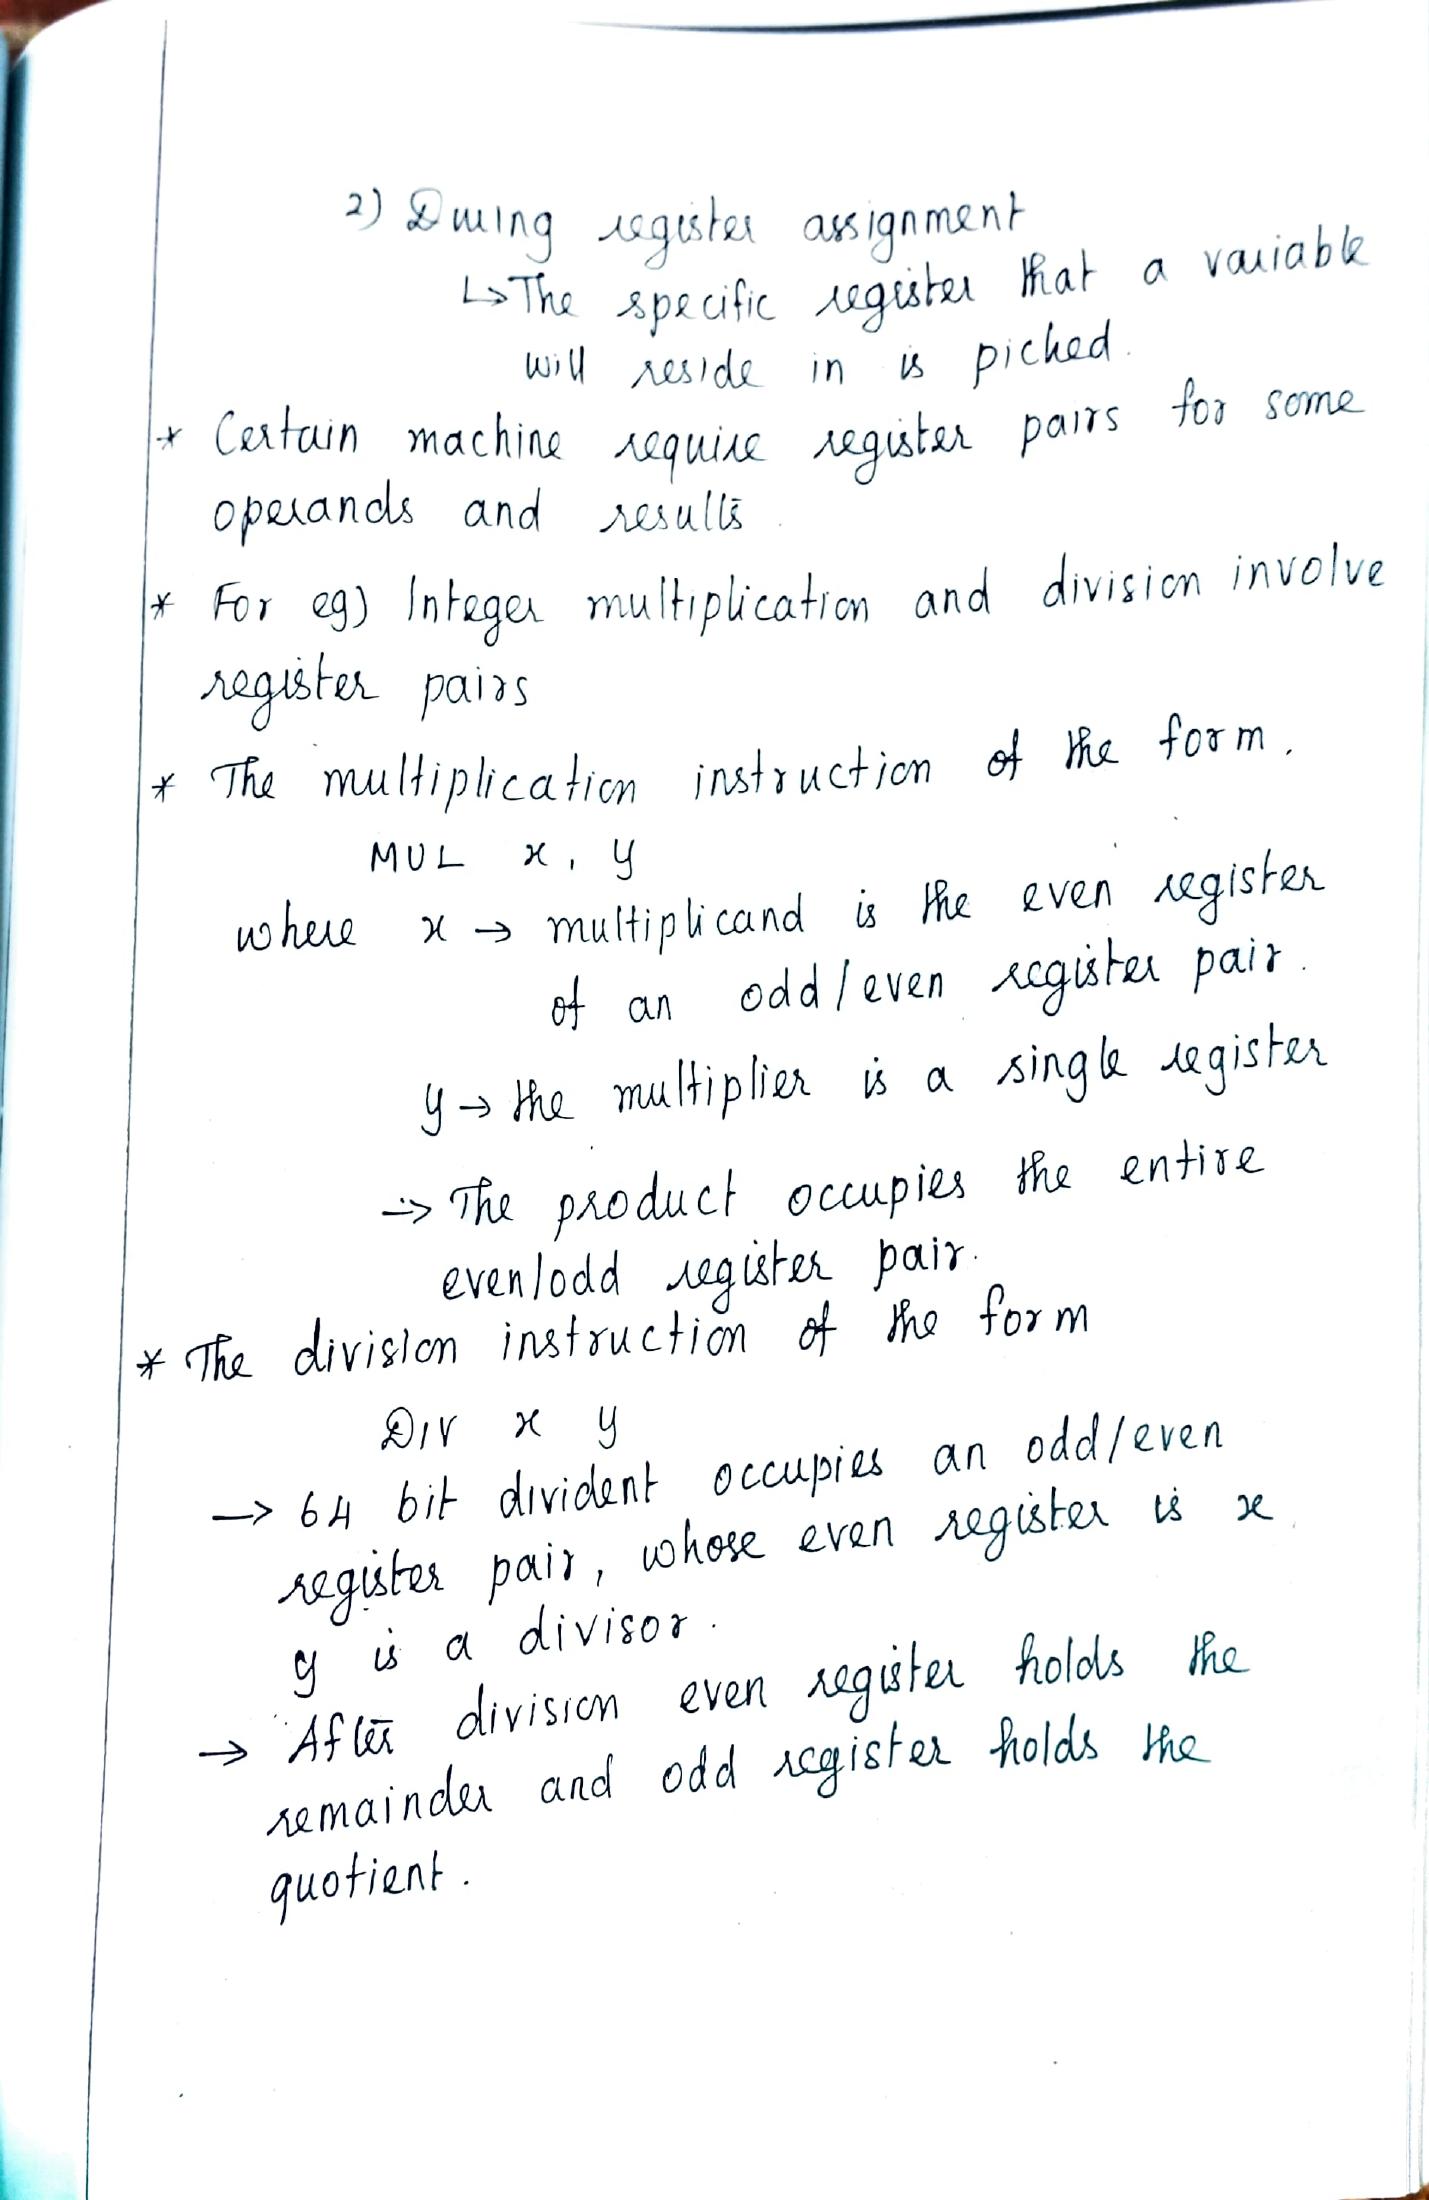 2) During register assignment
↳ The specific register that a variable
will reside in is picked.
* Certain machine require register pairs for some
operands and results.
* For eg) Integer multiplication and division involve
register pairs
* The multiplication instruction of the form,
MUL x, y
where x → multiplicand is the even register
of an odd/even register pair.
y → the multiplier is a single register
⇒ The product occupies the entire
even/odd register pair.
* The division instruction of the form
DIV x y
→ 64 bit divident occupies an odd/even
register pair, whose even register is x
y is a divisor.
→ After division even register holds the
remainder and odd register holds the
quotient.